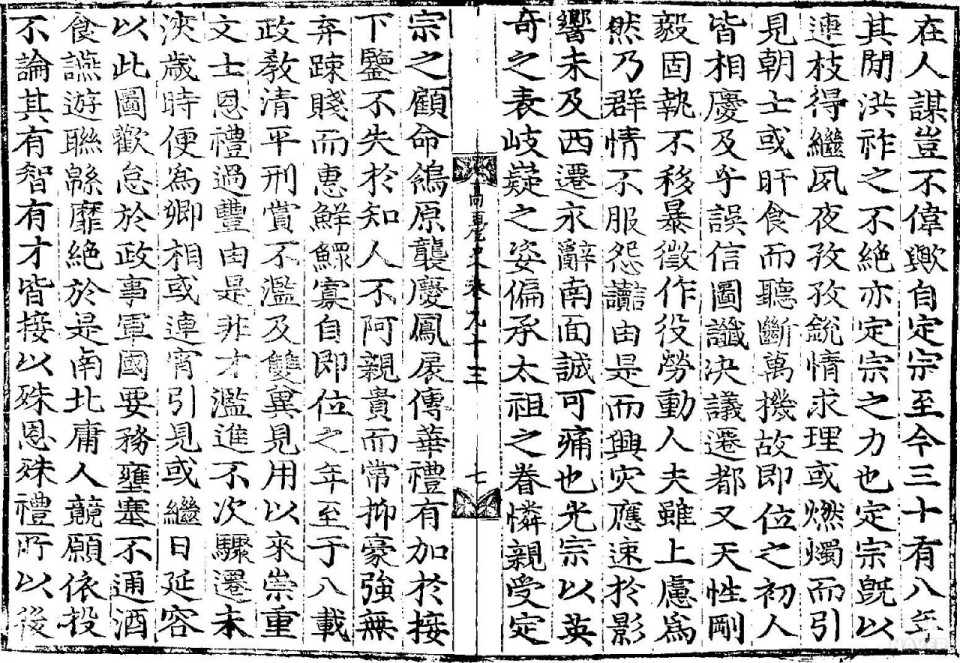 在人謀豈不偉歟自定宗至今三十有八年
其閒洪祚之不絕亦定宗之力也定宗旣以
連枝得繼夙夜孜孜銳情求理或燃燭而引
見朝士或旰食而聽斷萬機故即位之初人
皆相慶及乎誤信圖讖決議遷都又天性剛
毅固執不移暴徵作役勞動人夫雖上慮爲
然乃群情不服怨讟由是而興灾應速於影
響未及西遷永辭南面誠可痛也光宗以英
奇之表岐嶷之姿偏承太祖之眷憐親受定
高麗史卷九十三
七
宗之顧命鴒原襲慶鳳扆傳華禮有加於接
下鑒不失於知人不阿親貴而常抑豪強無
弃踈賤而惠鮮鰥寡自即位之年至于八載
政敎清平刑賞不濫及雙冀見用以來崇重
文士恩禮過豐由是非才濫進不次驟遷未
浹歲時便爲卿相或連宵引見或繼日延容
以此圖歡怠於政事軍國要務壅塞不通酒
食讌遊聯緜靡絕於是南北庸人競願依投
不論其有智有才皆接以殊恩殊禮所以後